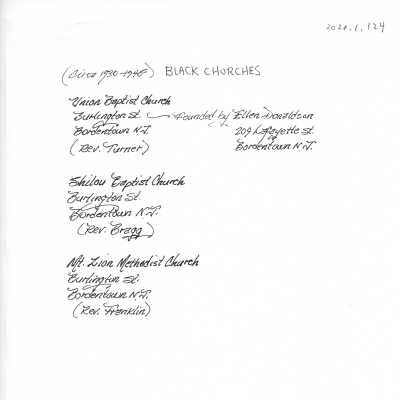 2020.1.124
(Circa 1930-1948) BLACK CHURCHES
Union Baptist Church
Burlington St. Founded by Ellen Donaldson
Bordentown N.J. 209 Lafayette St.
(Rev. Turner) Bordentown N.J.
Shilou Baptist Church
Burlington St.
Bordentown N.J.
(Rev. Bragg)
Mt. Zion Methodist Church
Burlington St.
Bordentown N.J.
(Rev. Franklin)